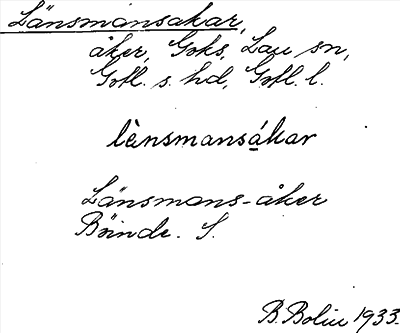 Länsmansakar,
åker, Goks, Lau sn,
Gotl. s. hd, Gotl. l.
lènsmansákar
Länsmans-åker
B. Bolin 1933.